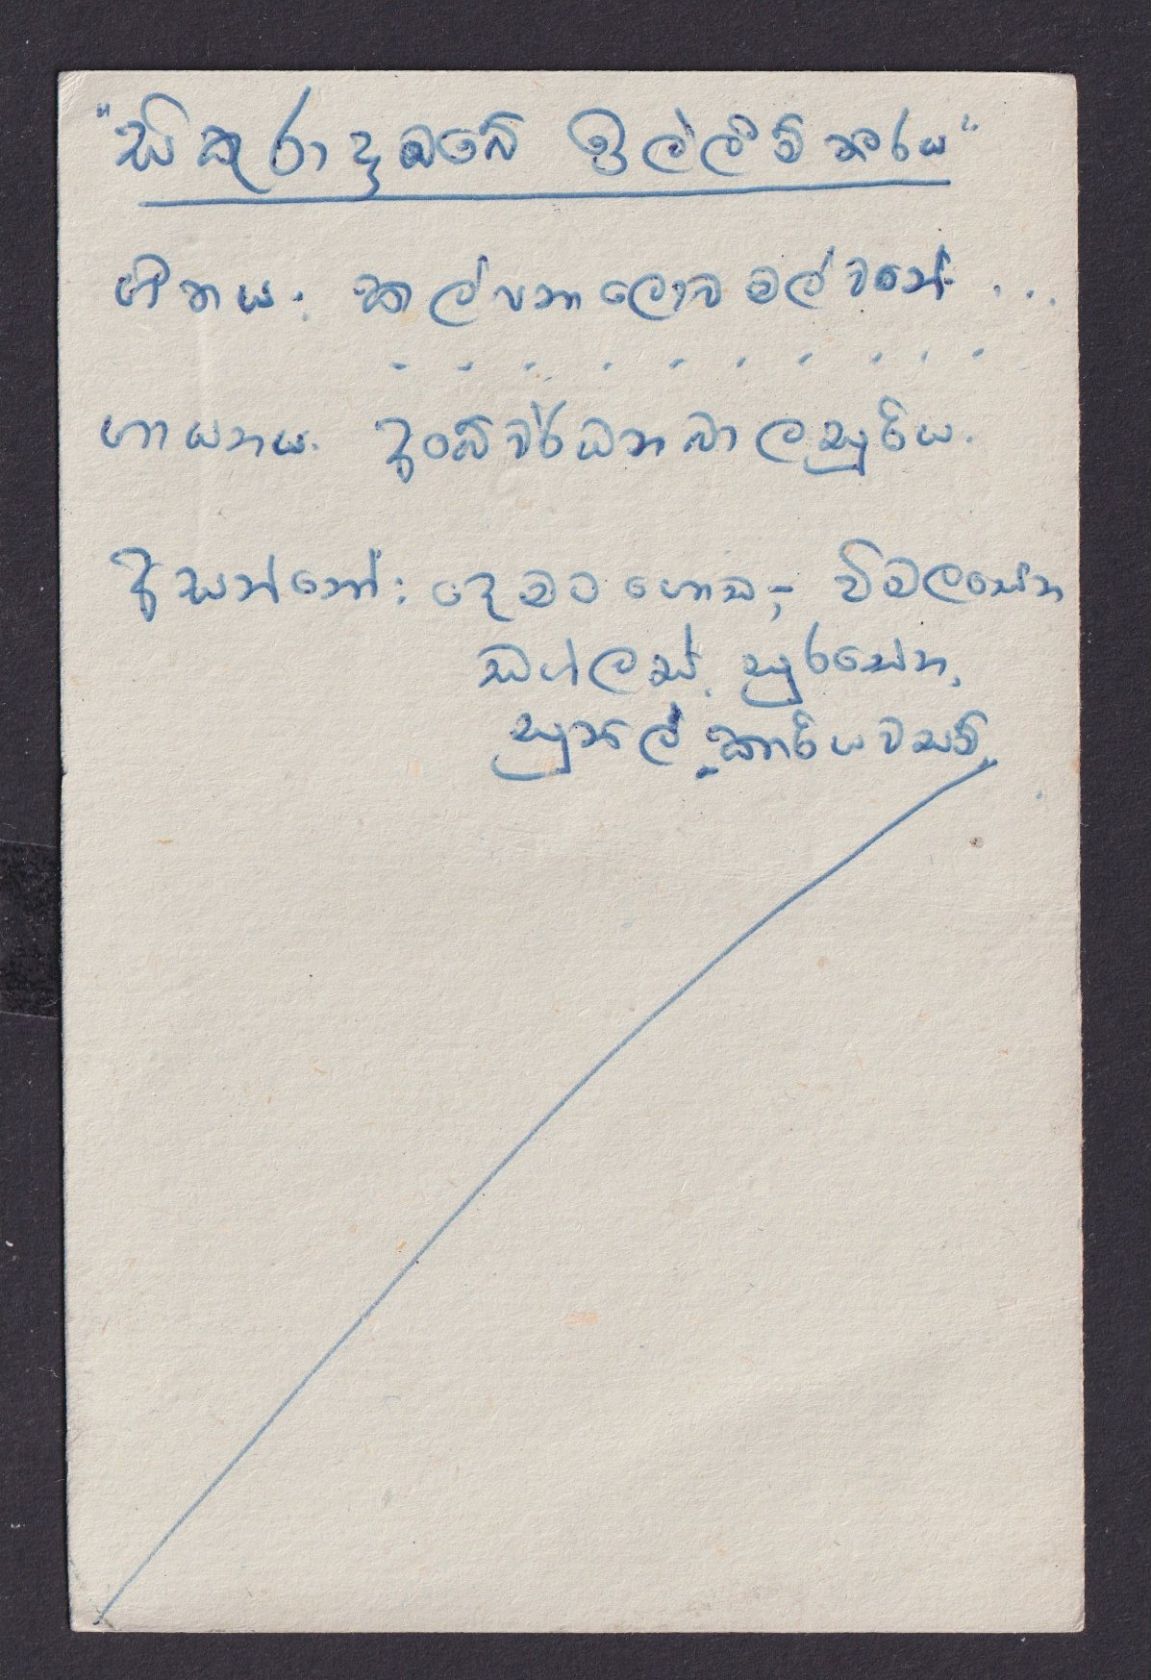 "සිකුරාදා ඔබේ ඉල්ලීම් තරය"
ගීතය: කල්පනා ලොව මල් වනේ ...
. . . . . . . . . .
ගායනය. ඉංද්‍රි වර්ධන බාලසූරිය.
ඉසන්නෝ: දෙමටගොඩ, විමලසේන
ඩග්ලස්, සුරසේන,
සුනිල් කාරියවසම්